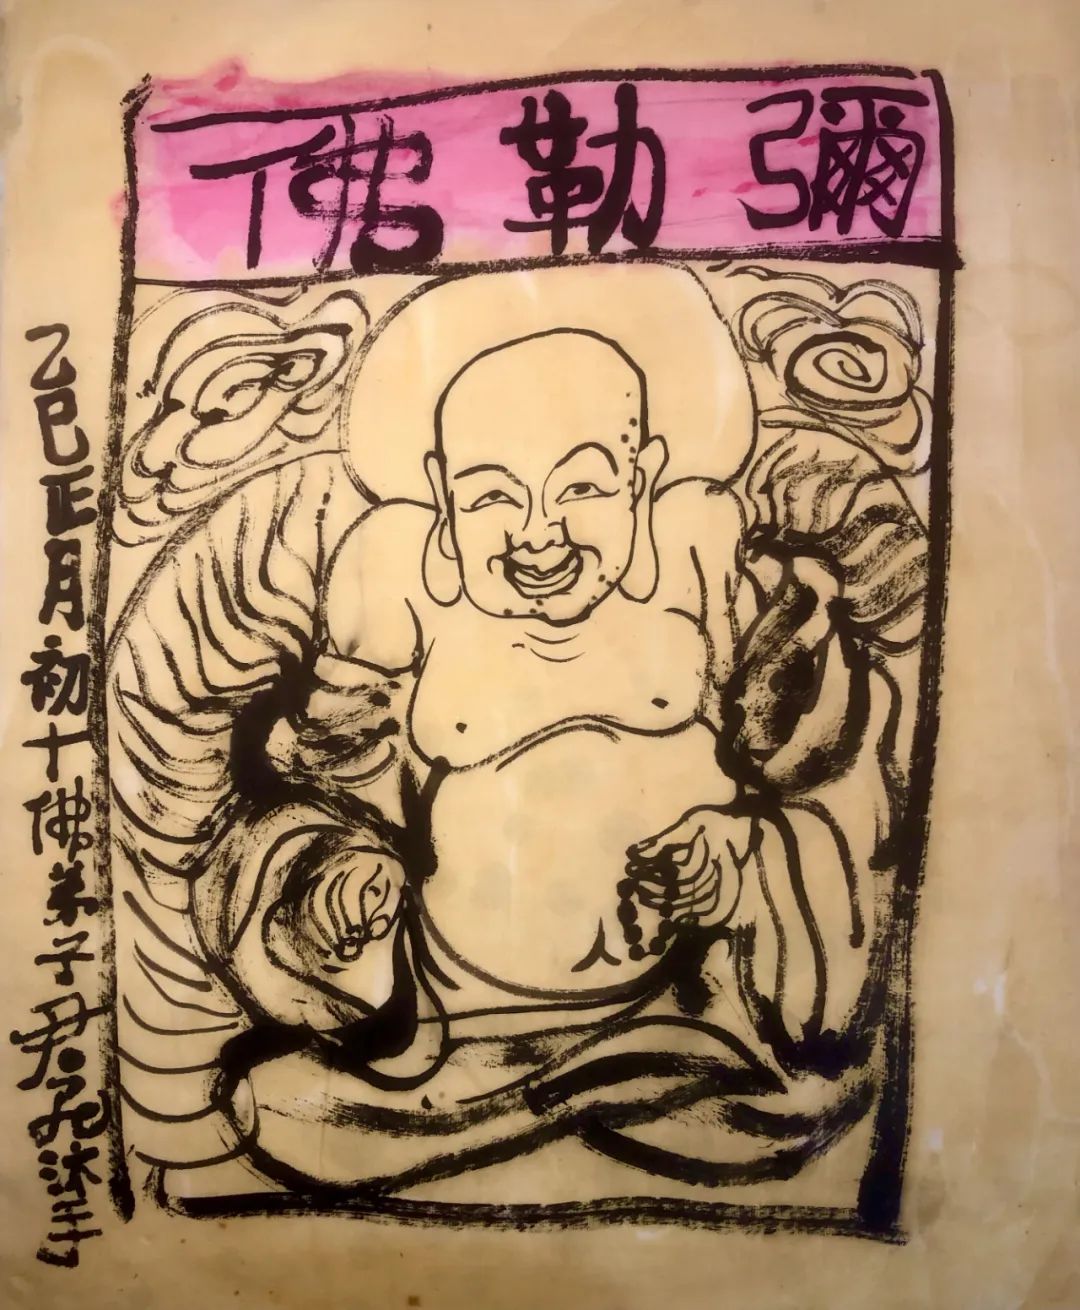 彌勒佛
乙巳正月初十佛弟子君